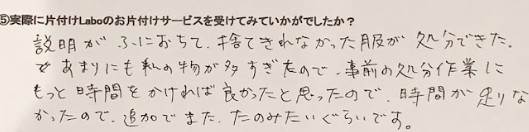 ⑤実際に片付けLaboのお片付けサービスを受けてみていかがでしたか？
説明が ふにおちて、捨てきれなかった服が 処分できた。
であまりにも私の物が多すぎたので、事前の処分作業に
もっと時間をかければ良かったと思ったので、時間が足りな
かったので、追加でまた、たのみたいぐらいです。